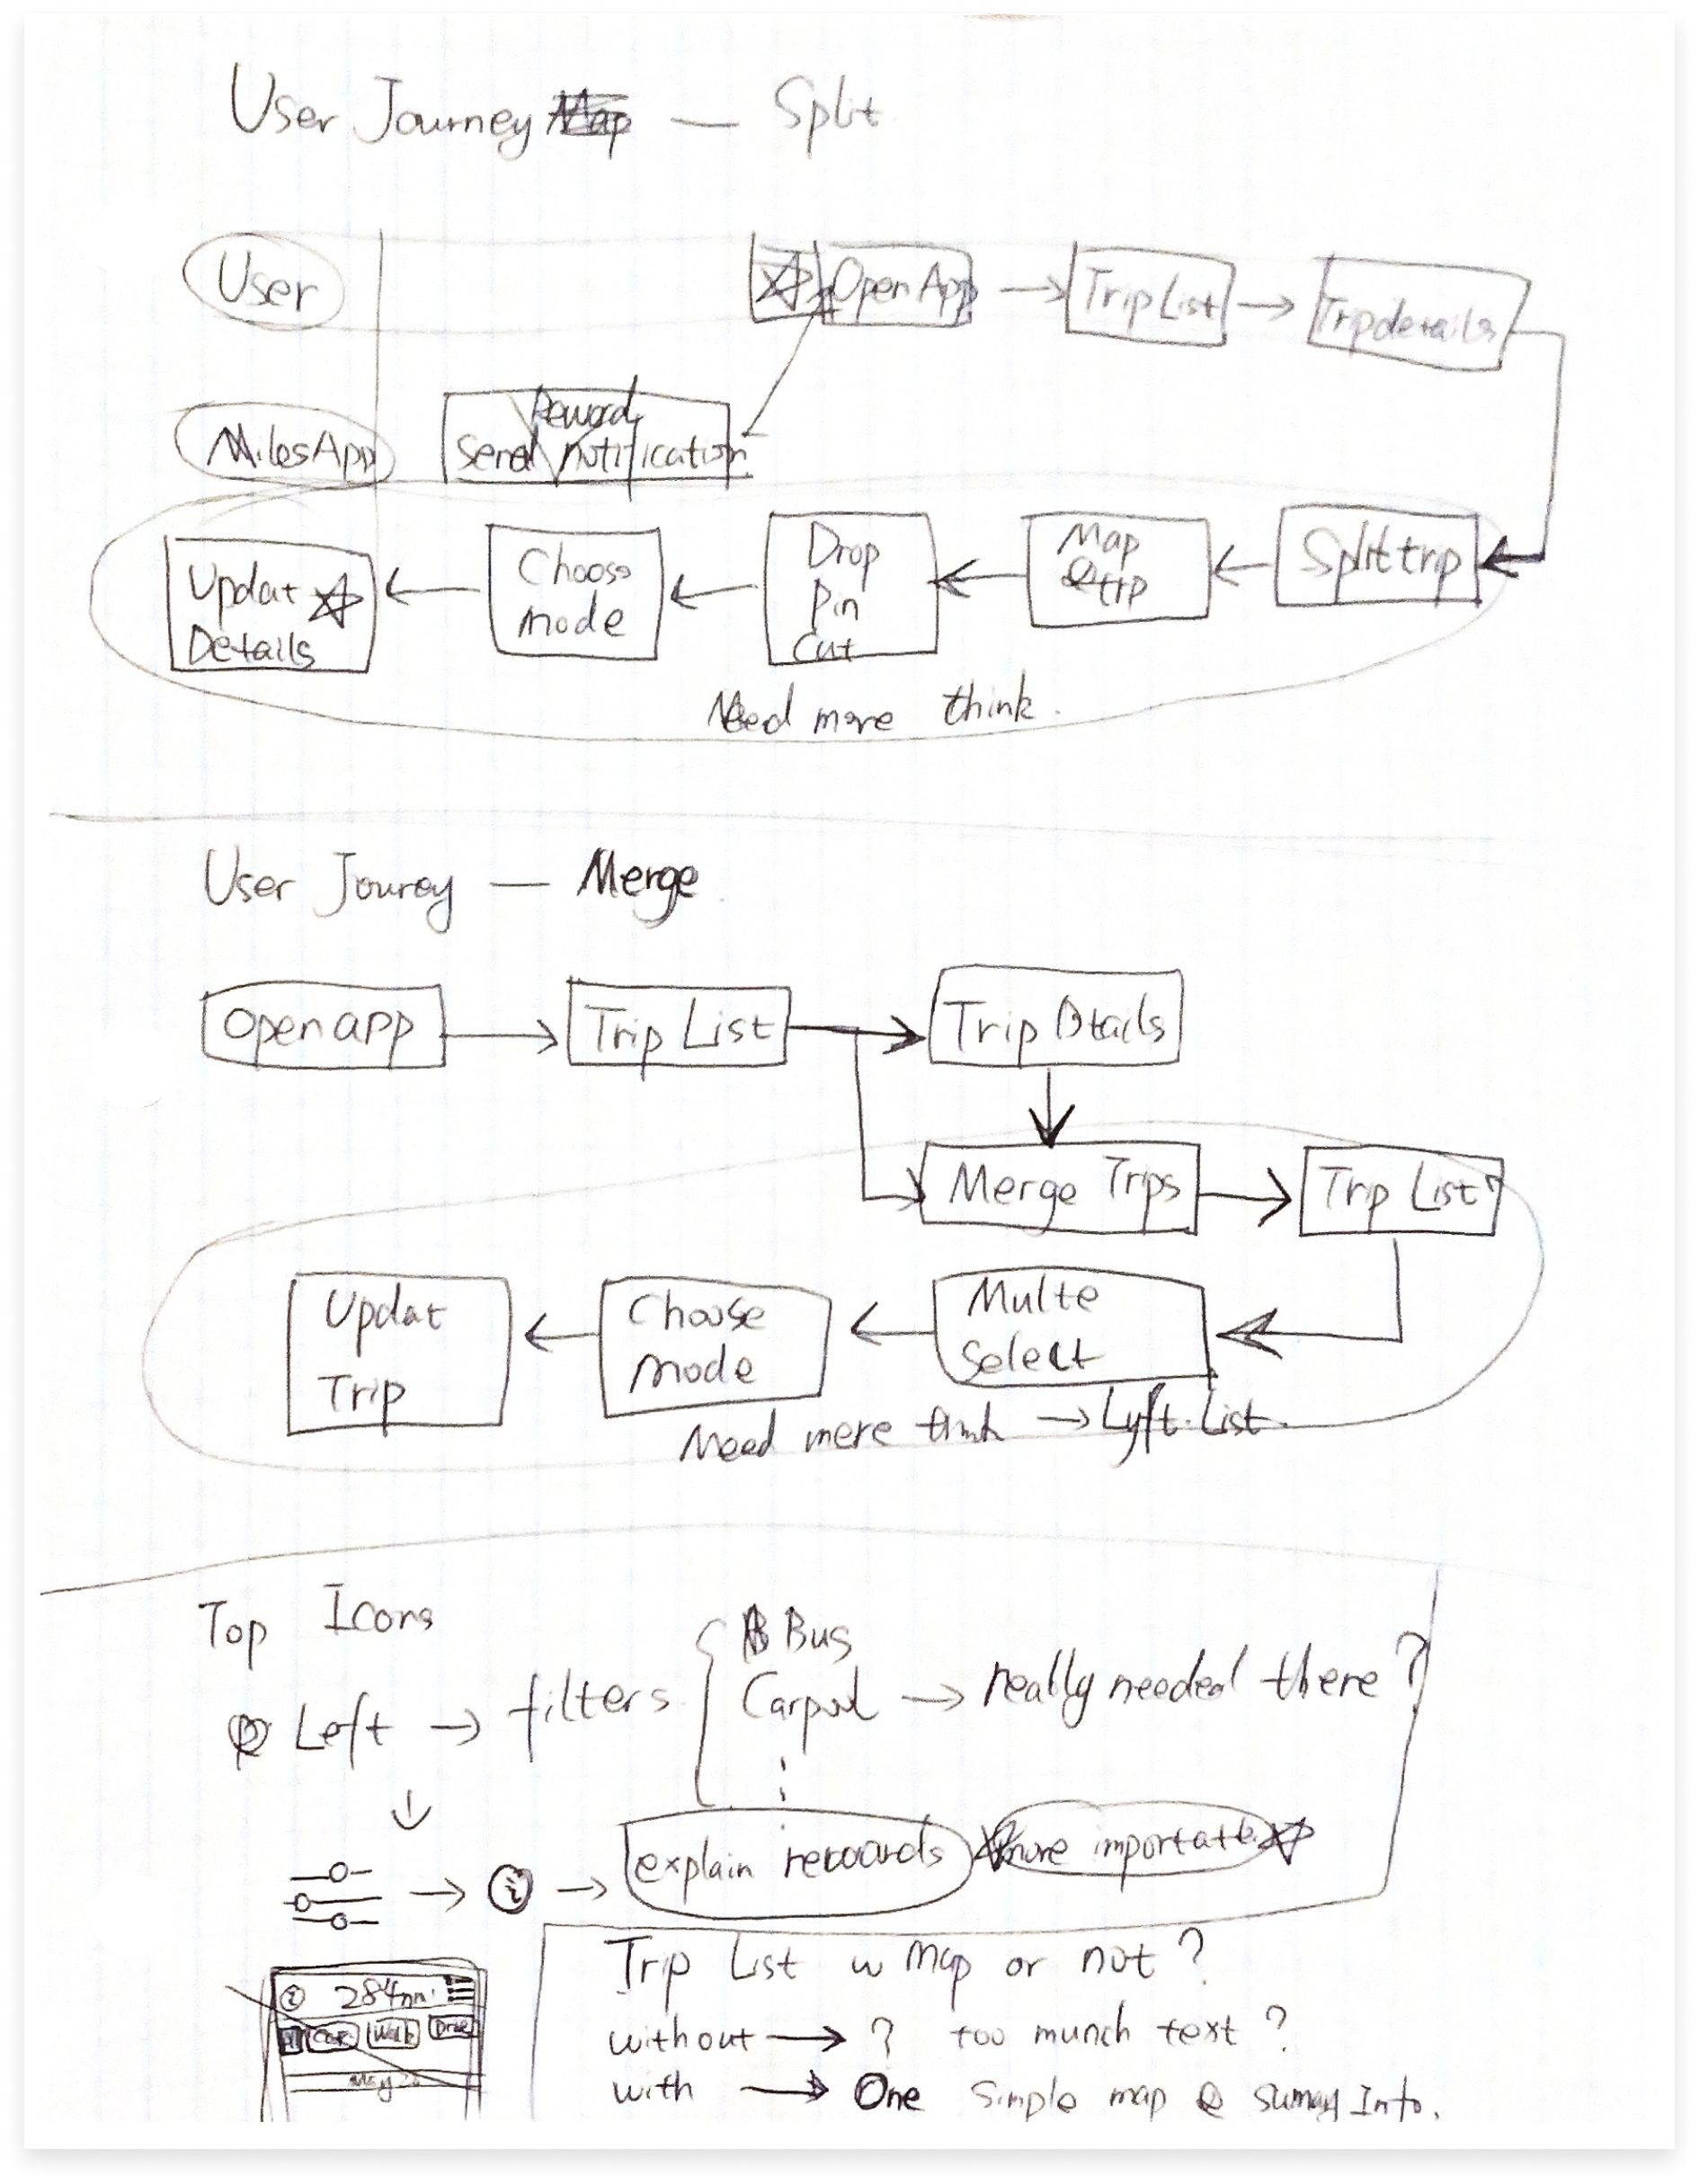 User Journey Map — Split
User
Open App → Trip List → Tripdetails
MilesApp
Reward
Send notification
Updat
Details
Choose
mode
Drop
Pin
Cut
Map
trp
Split trp
Need more think.
User Jourey — Merge
Open app → Trip List → Trip Dtails
Merge Trps → Trp List?
Updat
Trip
Choose
mode
Multe
Select
Need mere think → Lyft List.
Top Icons
Left → filters
Bus
Carpool → really needed there?
explain rewards
more important
i 284mi
Car Walk Drive
May
Trp List w Map or not?
without → ? too munch text?
with → One Simple map & sumay Info.